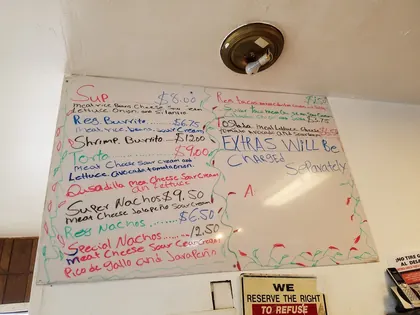 Sup $8.00
Meat rice Beans Cheese Sour Cream
Lettuce Onion and Silantro
Reg. Burrito..... $6.75
meat rice, beans, sour Cream
Shrimp. Burrito..... $12.00
Torta $9.00
Meat Cheese Sour Cream and
Lettuce, avocado, tomato, onion
Quesadilla Meat Cheese Sour Cream
an Lettuce
Super Nachos $9.50
Meat Cheese Jalapeño Sour Cream
Reg Nachos..... $6.50
Special Nachos..... 12.50
Meat Cheese Sour Cream
Pico de Gallo and Jarapeño
Reg. Tacos
Super
Meat Lettuce Cheese
Tomato Avocado and Sour Cream
EXTRAS WILL Be
Charged
Separately
A
WE
RESERVE THE RIGHT
TO REFUSE
¡NO TIRE